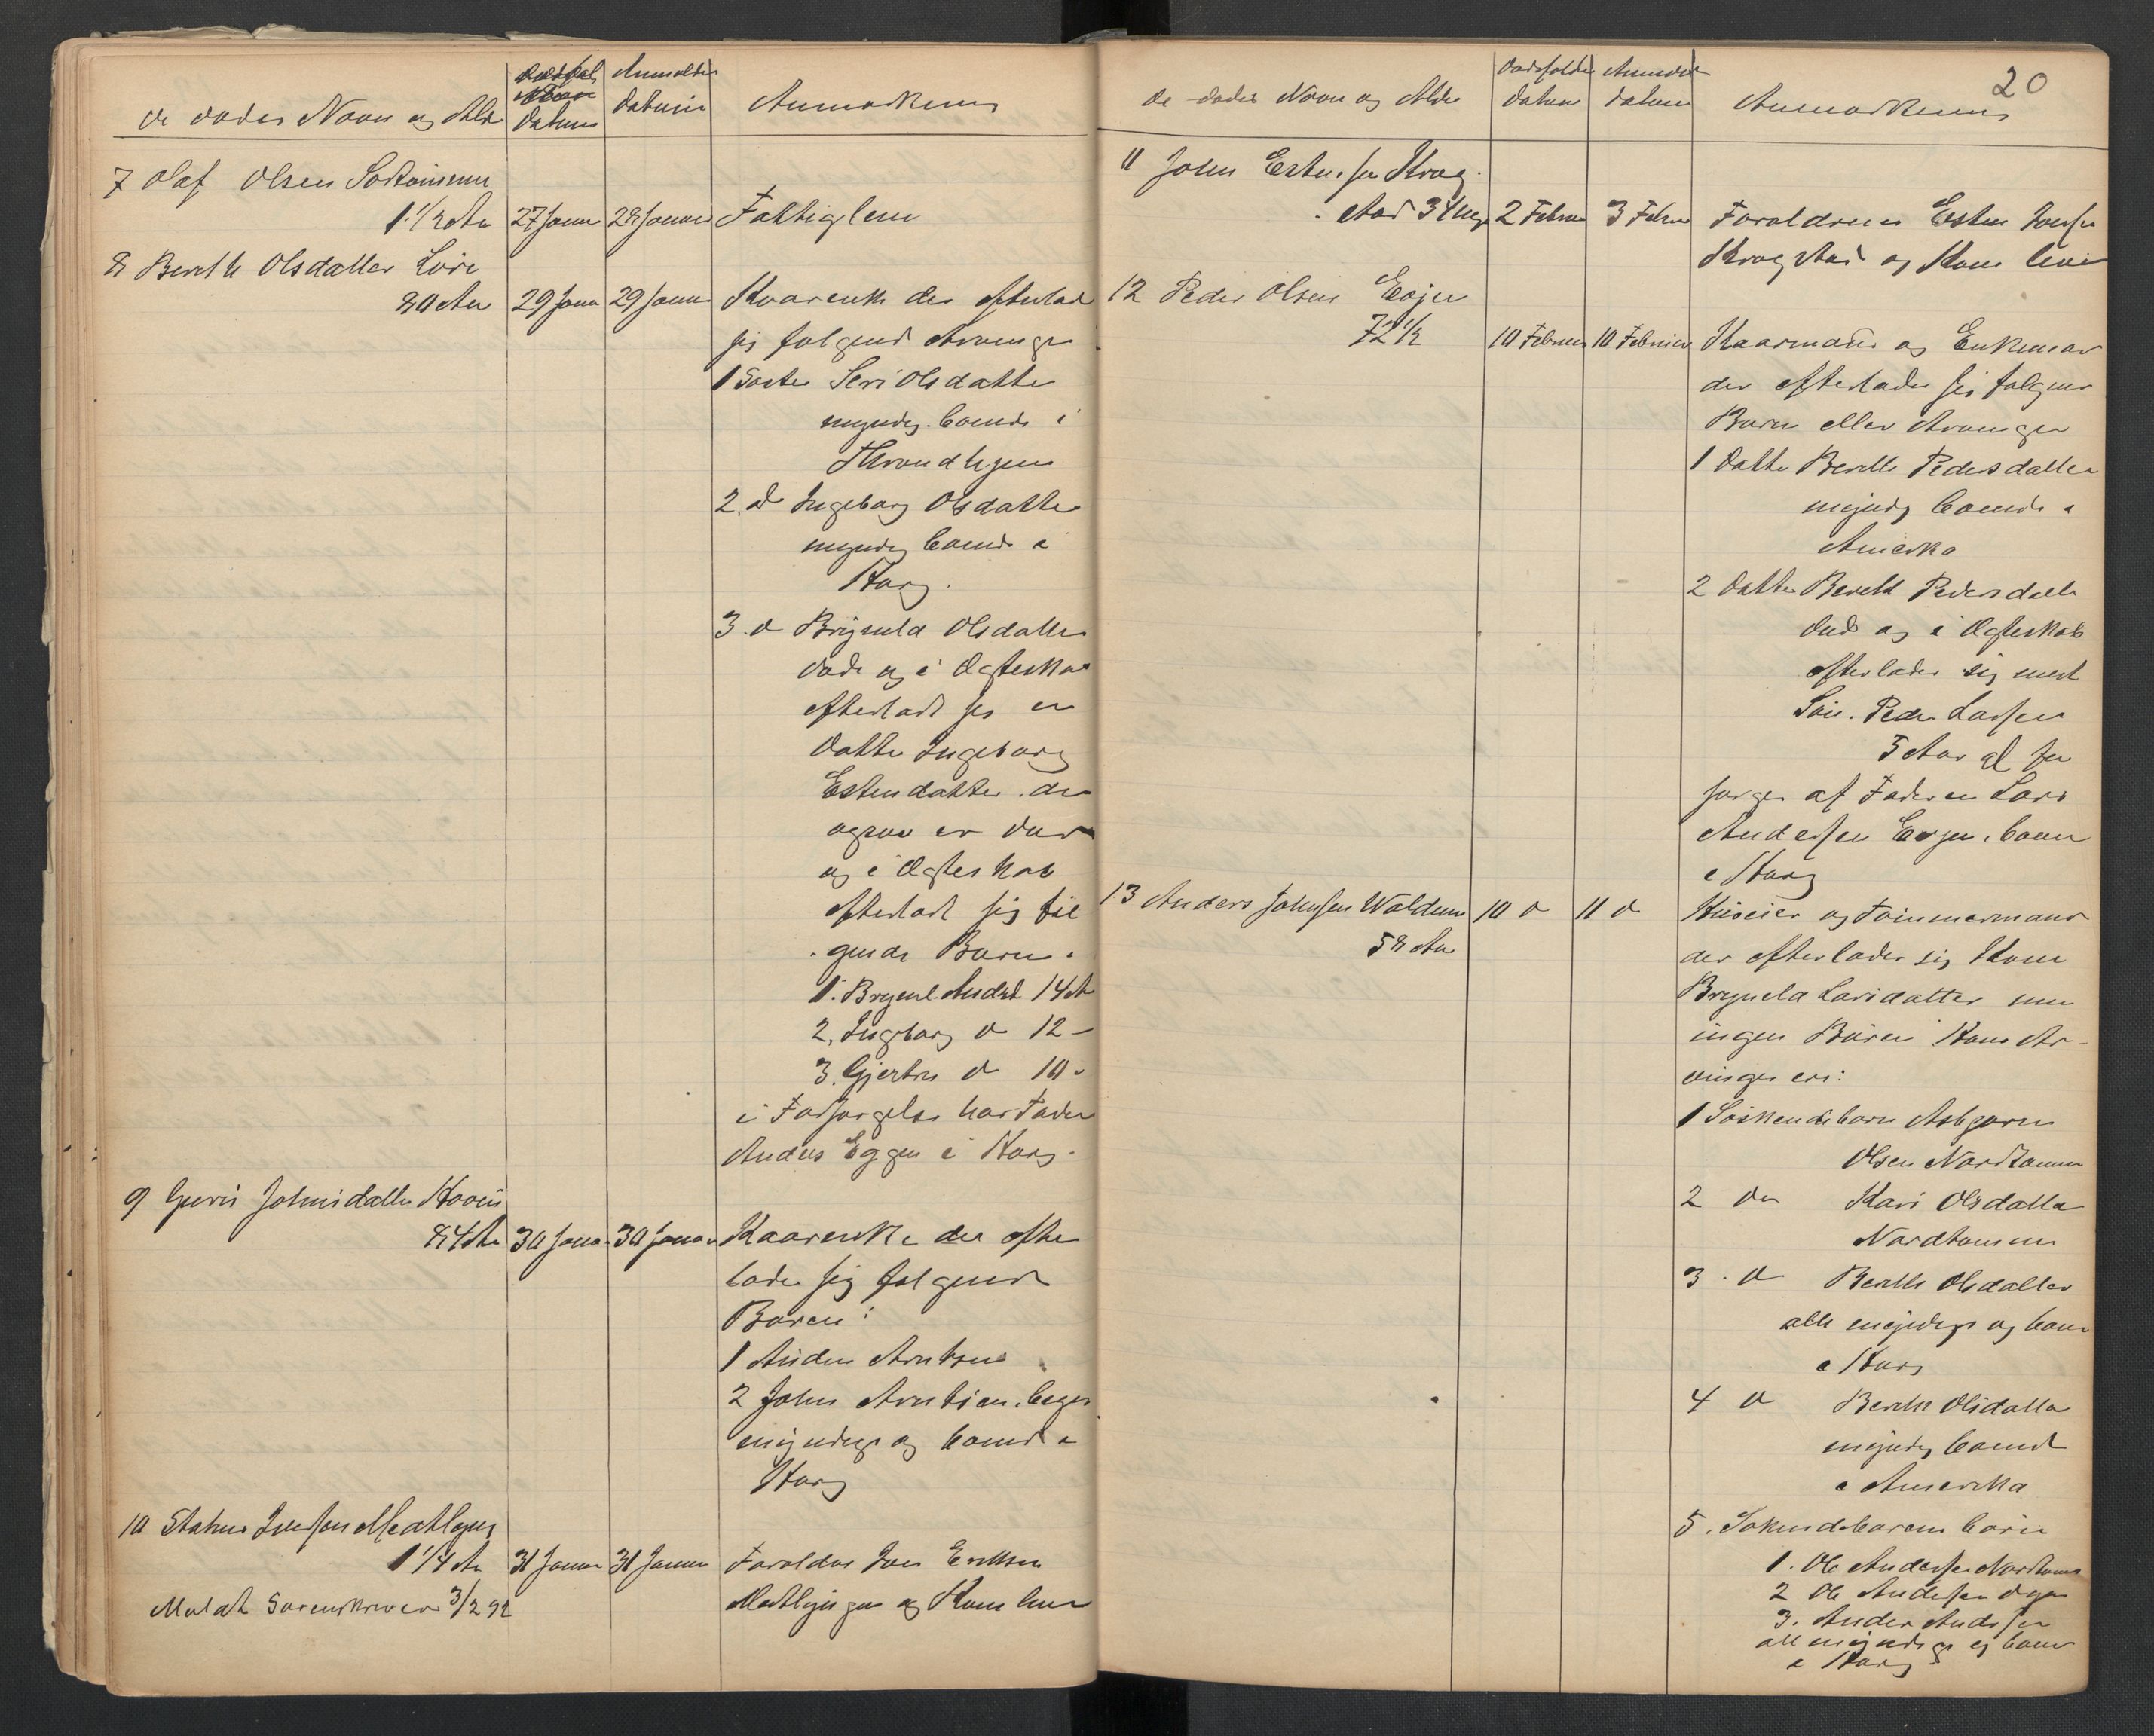 de dødes Navn og Alder
Dødsfal
Datum
Anmeldte
Datum
Anmærkning
7 Olaf Olsen
1 1/2 Aar 27 Januar 28 Januar Fattiglem
8 Berith Olsdatter Løre
80 Aar 29 Janu 29 Januar Kaarenke der efterlad
sig følgend Arvinge
1 Søster Seri Olsdatter
myndig boende i
Throndhjem
2. do Ingeborg Olsdatter
myndig boende i
Horg.
3. do Brynild Olsdatter
døde og i Ægteskab
efterladt sig en
Datter Ingeborg
Estensdatter der
ogsaa er død
og i Ægteskab
efterladt sig føl
gende Børn.
1. Brynil. Andsd 14 A
2. Ingeborg do 12 –
3. Gjertru do 10 –
i Forsørgelse hos Fader
Anders Eggen i Horg.
9 Guru Johnsdatter Hovin
84 Aar 30 Janua 30 Januar Kaarenke der efter
lader sig følgend
Børn:
1 Anders Arntsen
2 John Arntsen, begge
myndige og boende i
Horg
10 Iversen
1 1/4 Aar 31 Januar 31 Januar Forældre Iver Eriksen
og Kone lever
Meldt Sorenskriver 3/2 92
20
de døde Navn og Alder
Dødsfaldet
Datum
Anmeldt
Datum
Anmærkning
11 John Estensen Krog
stad 3 Uger 2 Februar 3 Februar Forældrene Esten Iversen
Krogstad og Kone lever
12 Peder Olsen Evjen
72 1/2 10 Februar 10 Februar Kaarmand og Enkemand
der efterlader sig følgend
Børn eller Arvinger
1 Datter Berith Pedersdatter
myndig boende i
Amerika
2 Datter Berith Pedersdatter
død og i Ægteskab
efterlader sig med
Søn. Peder Larsen
5 Aar gl for
sørges af Faderen Lars
Andersen Evjen, boen
i Horg
13 Anders Johnsen Woldum 10 do 11 do Huseier og Tømmermand
58 Aar der efterlader sig Kone
Brynild Larsdatter men
ingen Børen Hans Ar-
vinger er:
1 Søskendebarn Asbjørn
Olsen Nordtømme
2 do Kari Olsdatter
Nordtømme
3. do Berith Olsdatter
alle myndige og boen
i Horg
4 do Berith Olsdatter
myndig boend
i Amerika
5. Søkendebarns børn
1. Ole Andersen Nordtømme
2 Ole Andersen
3. Anders Andersen
alle myndige og boen
i Horg